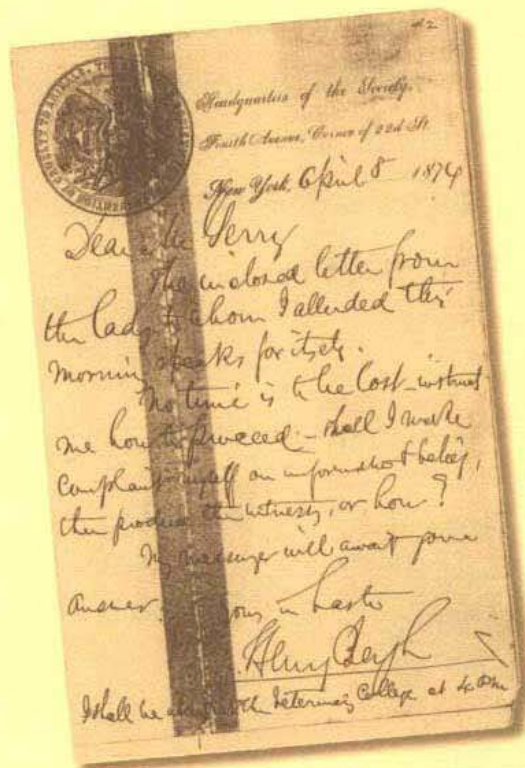 42
CRUELTY TO ANIMALS
Headquarters of the Society,
Fourth Avenue, Corner of 22d St.
New York, April 8 1874
Dear Mr Gerry
The inclosed letter from
the lady to whom I alluded this
morning speaks for itself.
No time is to be lost - instruct
me how to proceed - shall I make
complaint myself on information & belief,
then produce the witness, or how?
My messenger will await your
answer. Yours in haste
Henry Bergh
I shall be at the Veterinary College at 4 PM